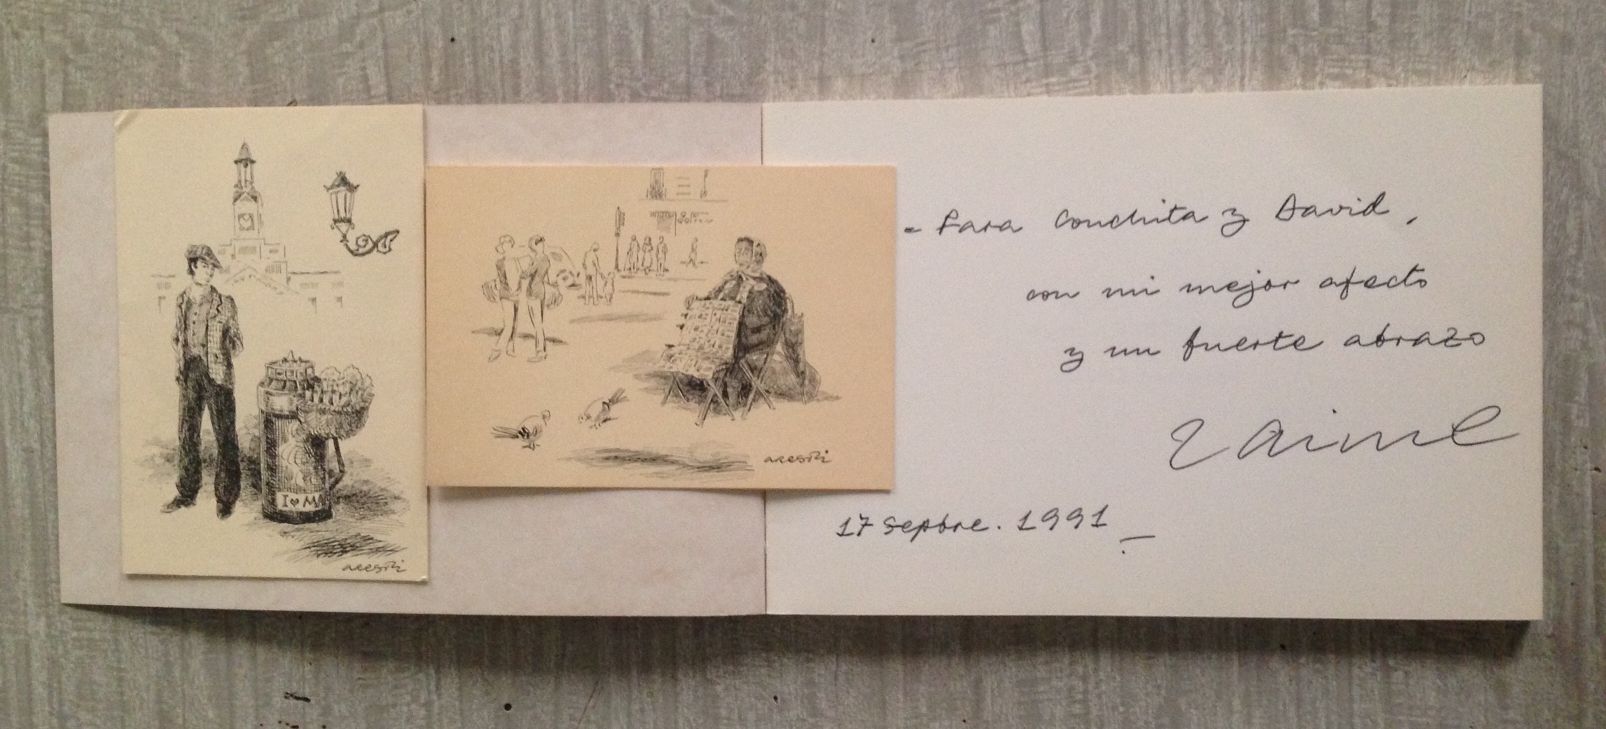 I ♥ MA
- Para Conchita y David,
con mi mejor afecto
y un fuerte abrazo
Jaime
17 Sepbre. 1991